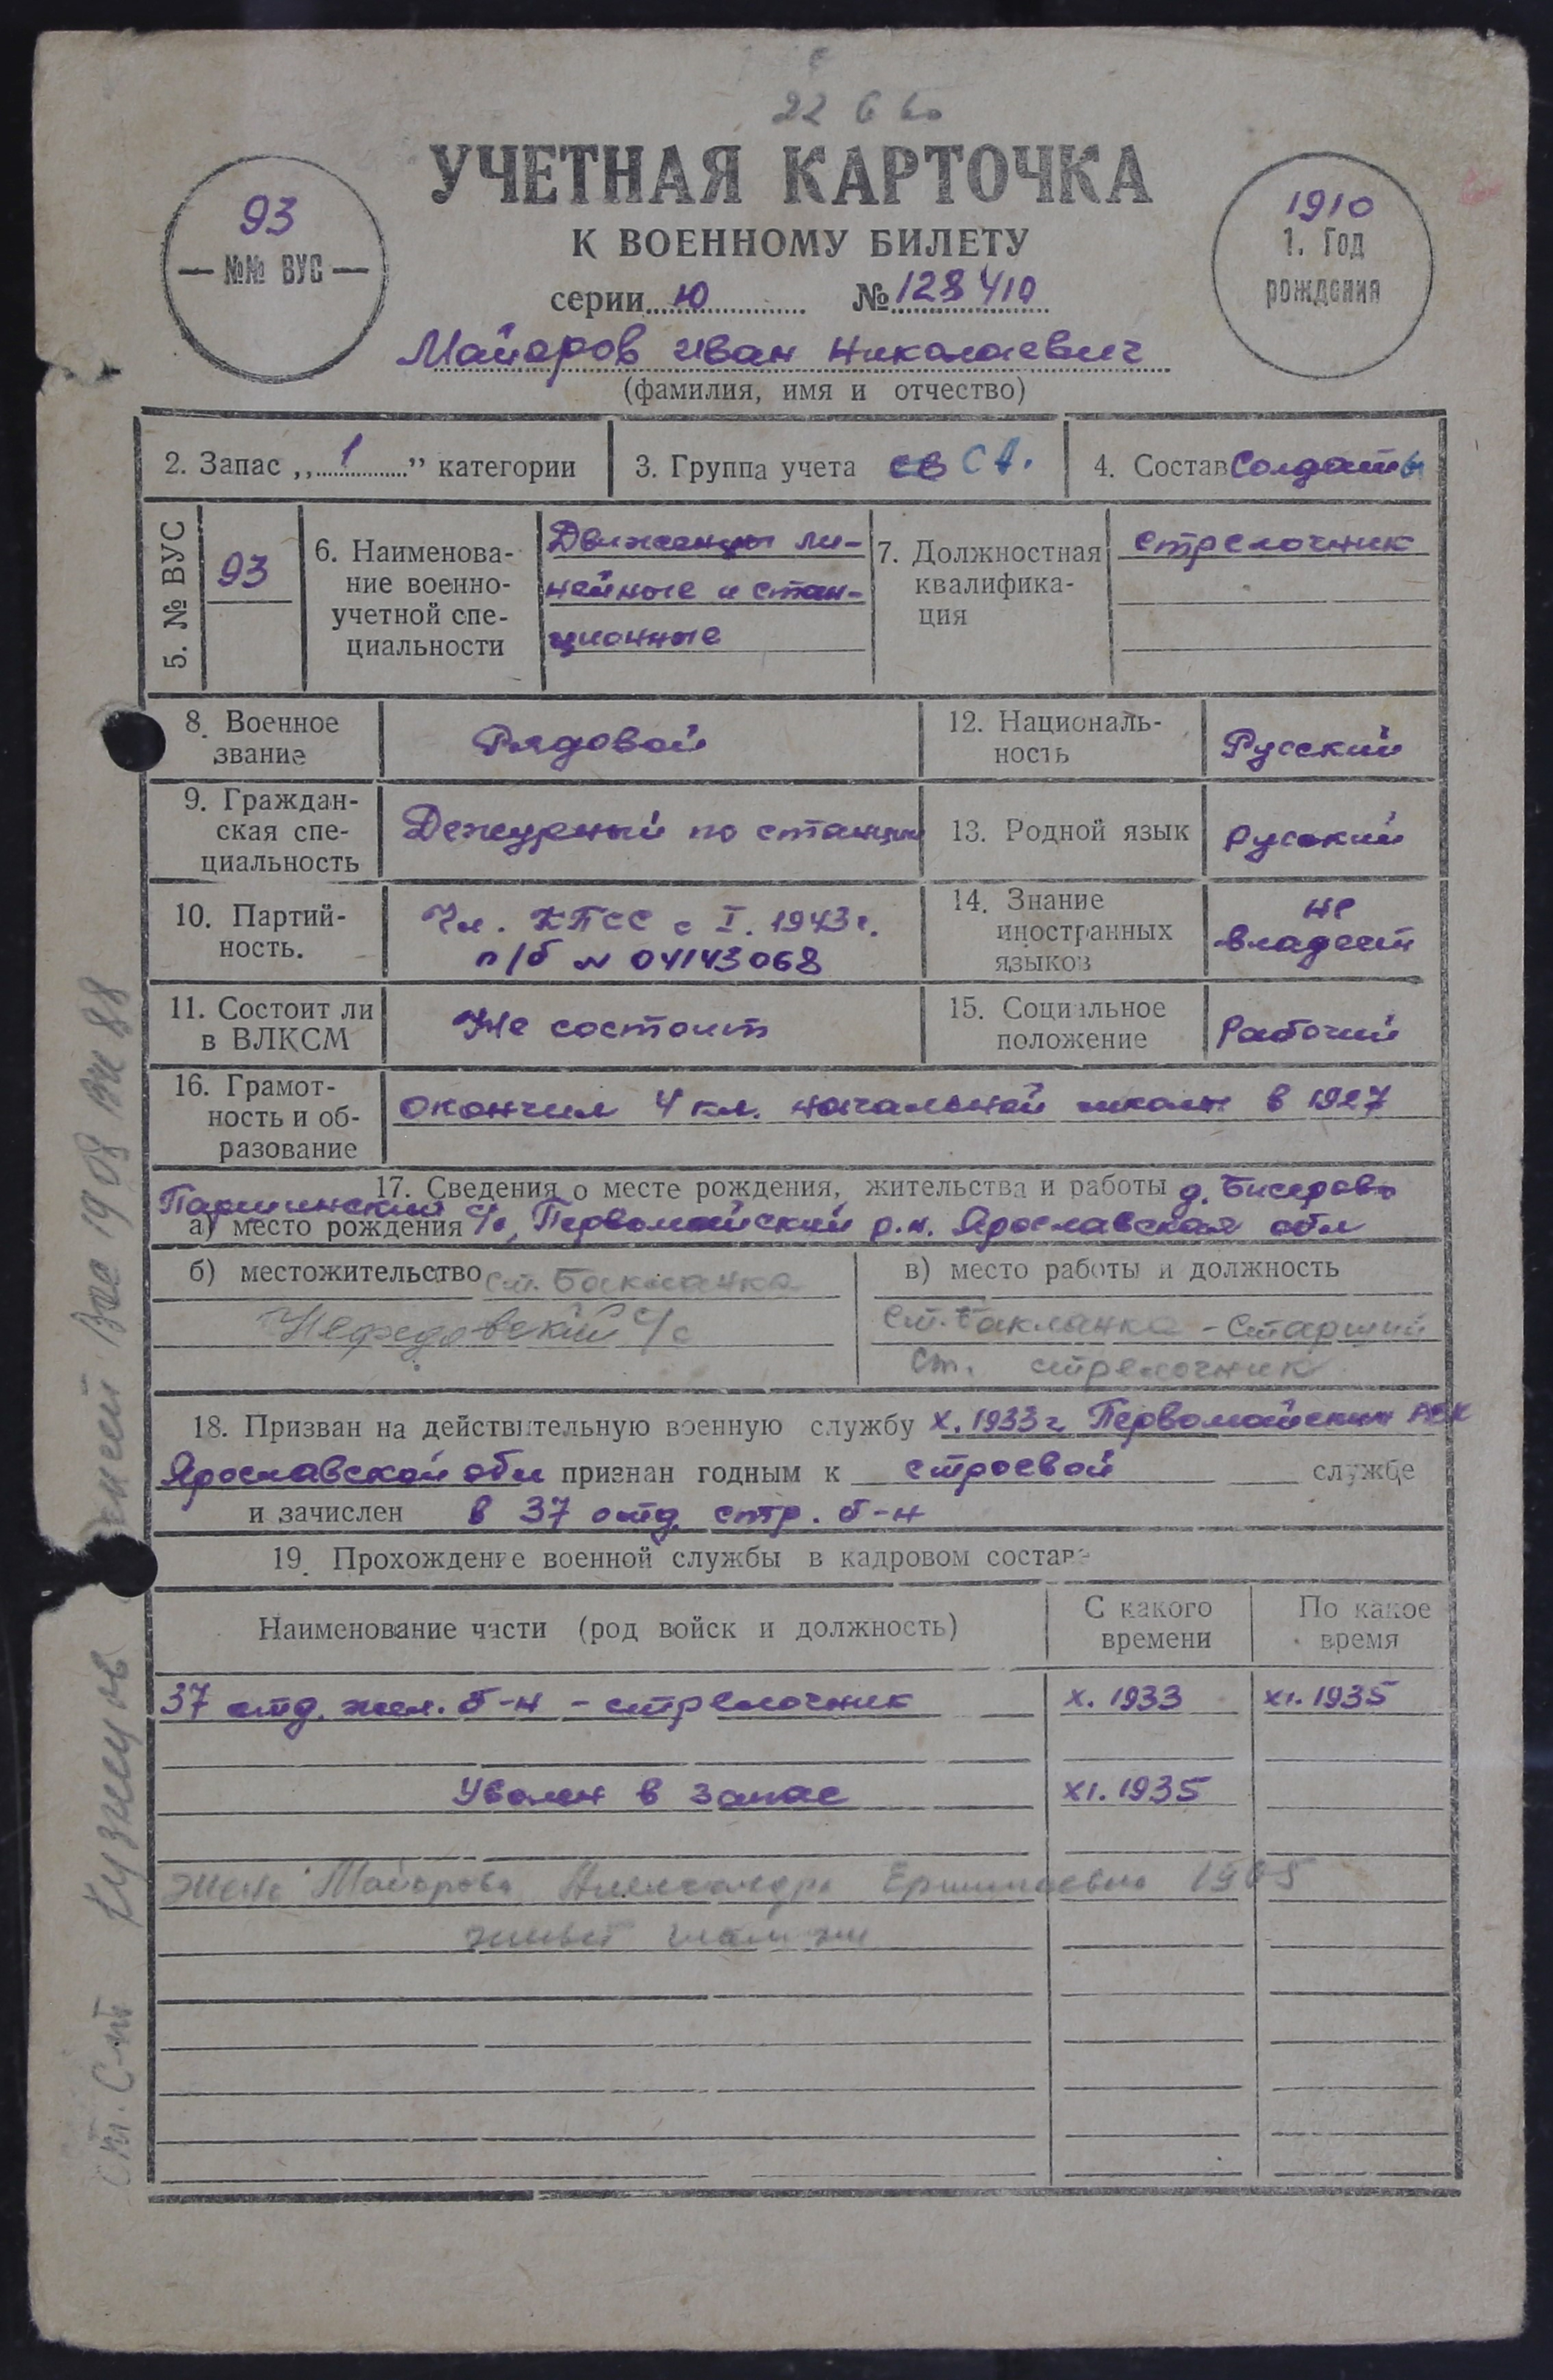 22 6 60
УЧЕТНАЯ КАРТОЧКА
К ВОЕННОМУ БИЛЕТУ
93
— №№ ВУС —
1910
1. Год
рождения
серии Ю № 128410
Майоров Иван Николаевич
(фамилия, имя и отчество)
2. Запас „1” категории
3. Группа учета св СА.
4. Состав Солдаты
5. № ВУС
93
6. Наименова-
ние военно-
учетной спе-
циальности
Движенцы ли-
нейные и стан-
ционные
7. Должностная
квалифика-
ция
стрелочник
8. Военное
звание
Рядовой
12. Националь-
ность
Русский
9. Граждан-
ская спе-
циальность
Дежурный по станции
13. Родной язык
Русский
10. Партий-
ность.
Чл. КПСС с I. 1943г.
п/б N 04143068
14. Знание
иностранных
языков
не
владеет
11. Состоит ли
в ВЛКСМ
Не состоит
15. Социальное
положение
Рабочий
16. Грамот-
ность и об-
разование
окончил 4 кл. начальной школы в 1927
17. Сведения о месте рождения, жительства и работы д. Бисерово
а) место рождения Паршинский с/с, Первомайский р.н. Ярославская обл
б) местожительство ст. Бакланка
Нефедовский с/с
в) место работы и должность
ст. Бакланка - Старший
ст. стрелочник
18. Призван на действительную военную службу X. 1933г Первомайским РВК
Ярославской обл признан годным к строевой службе
и зачислен в 37 отд. стр. б-н
19. Прохождение военной службы в кадровом составе
Наименование части (род войск и должность)
С какого
времени
По какое
время
37 отд. жел. б-н - стрелочник X. 1933 XI. 1935
Уволен в запас XI. 1935
Жена Майорова Александра 1905
живет там же
Ст. С-нт Кузнецов 1908 88